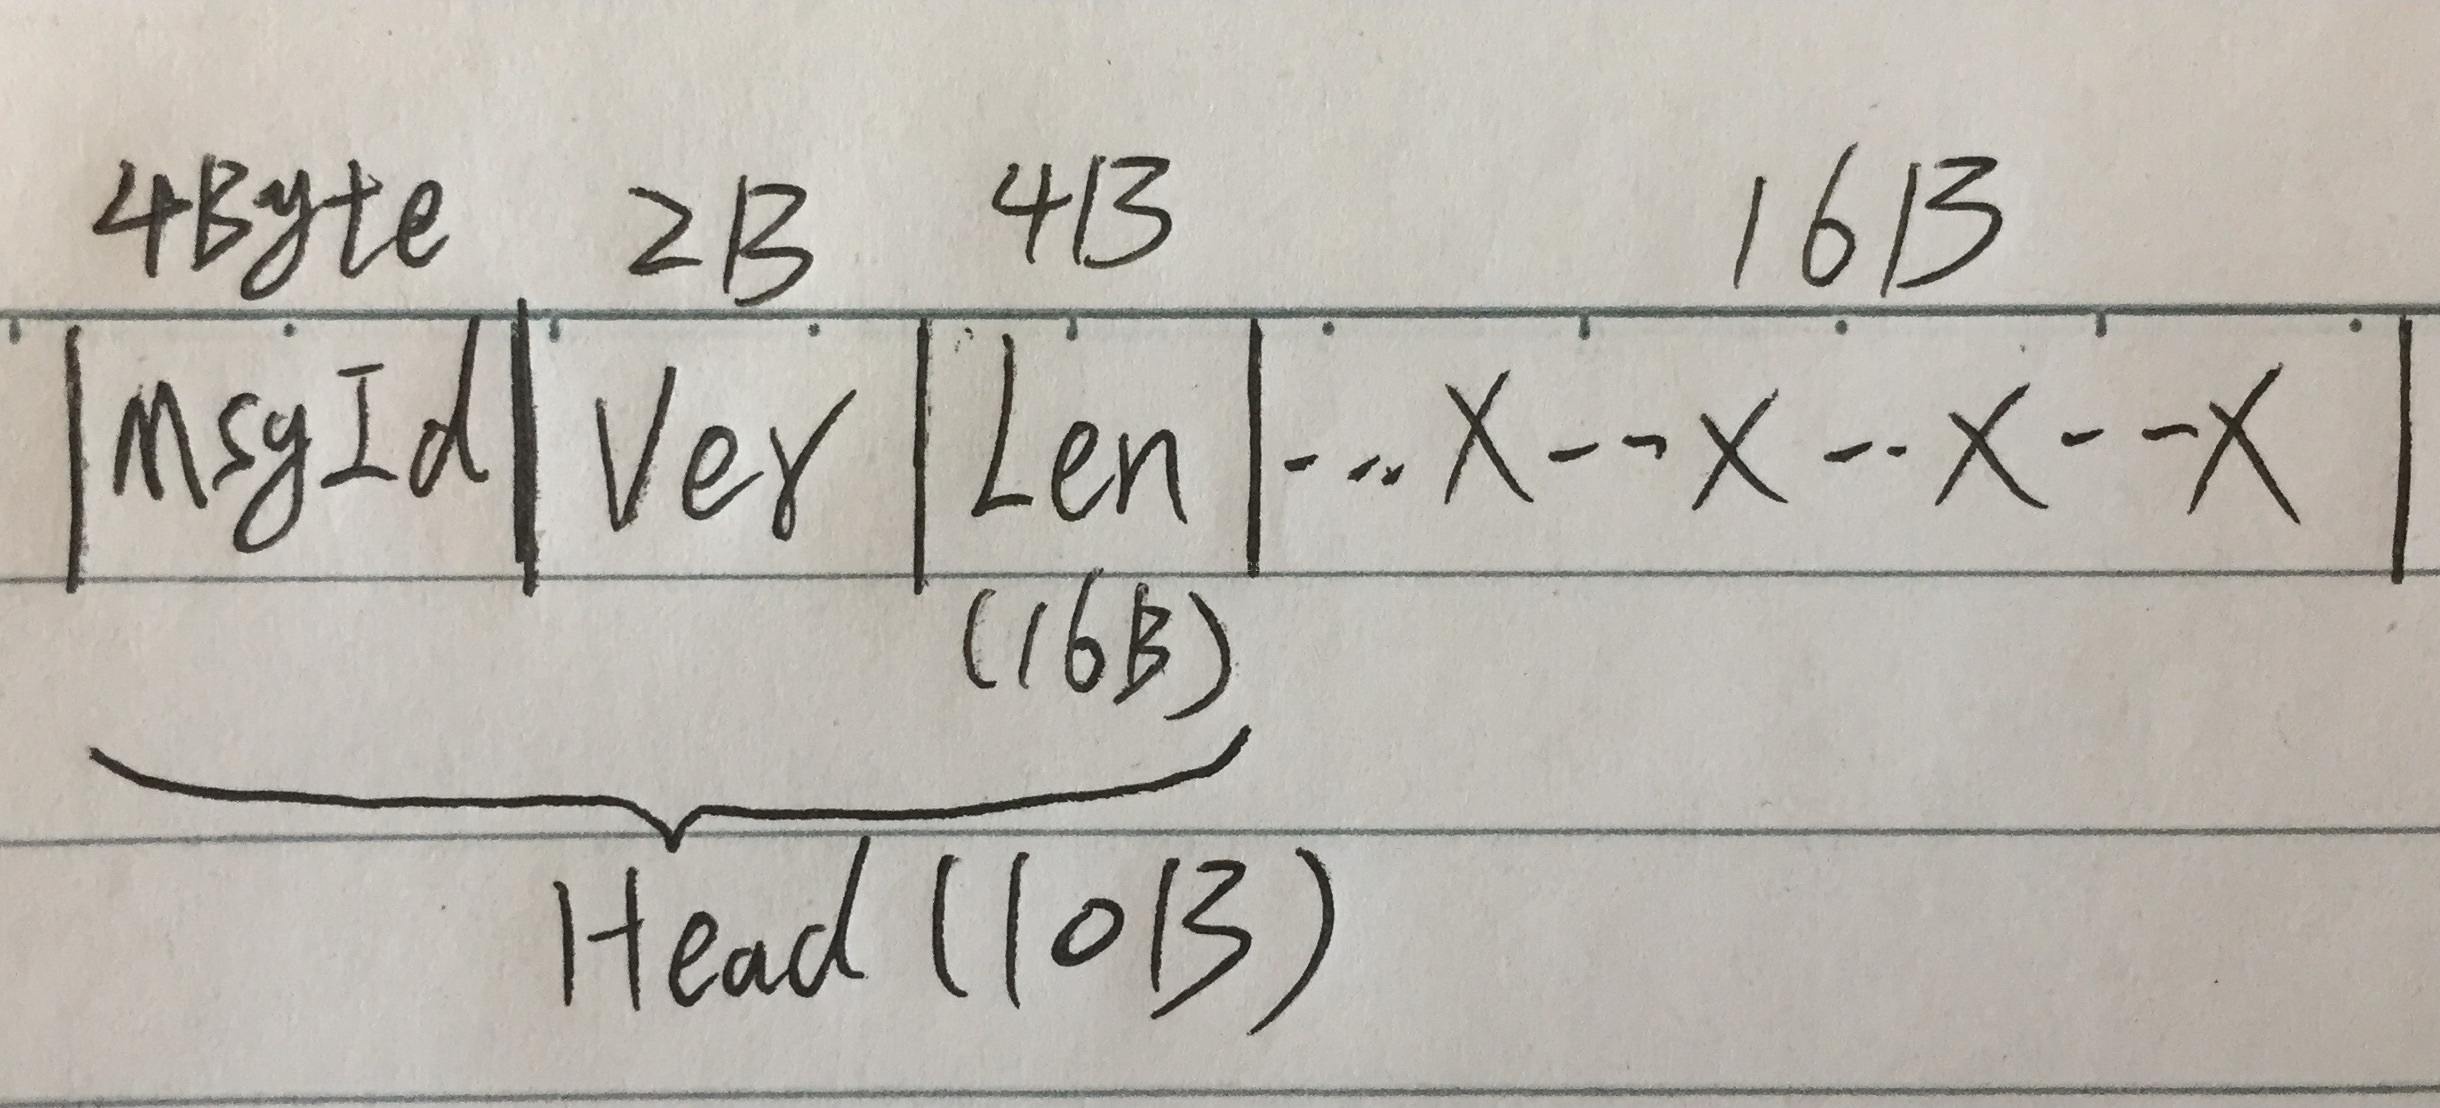 4Byte 2B 4B 16B
|MsgId|Ver|Len|--...X---X---X---X|
(16B)
Head (10B)